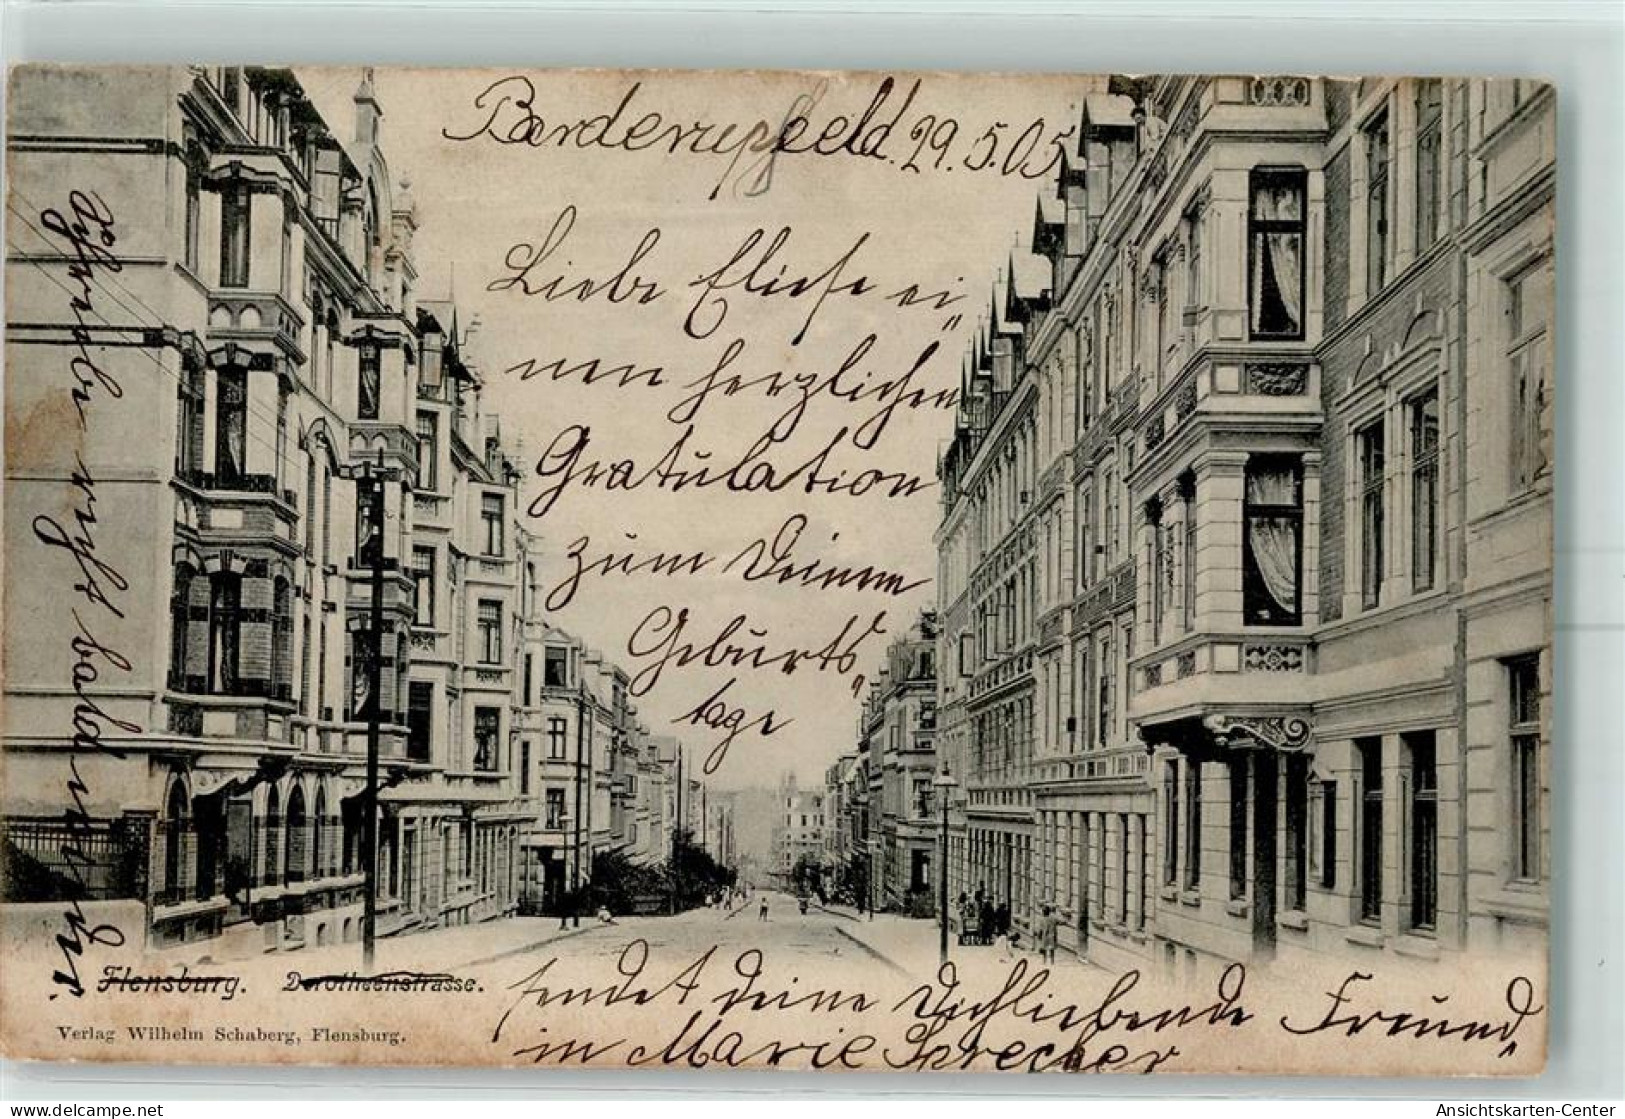 Barderupfeld. 29.5.05.
Liebe Eliese ei„
nen herzlichen
Gratulation
zum Deinem
Geburts„
tage
sendet deine Dichliebende Freund„
in Marie Sprecher
Schreibe recht bald wieder
Flensburg. Dorotheenstrasse.
Verlag Wilhelm Schaberg, Flensburg.
Ansichtskarten-Center